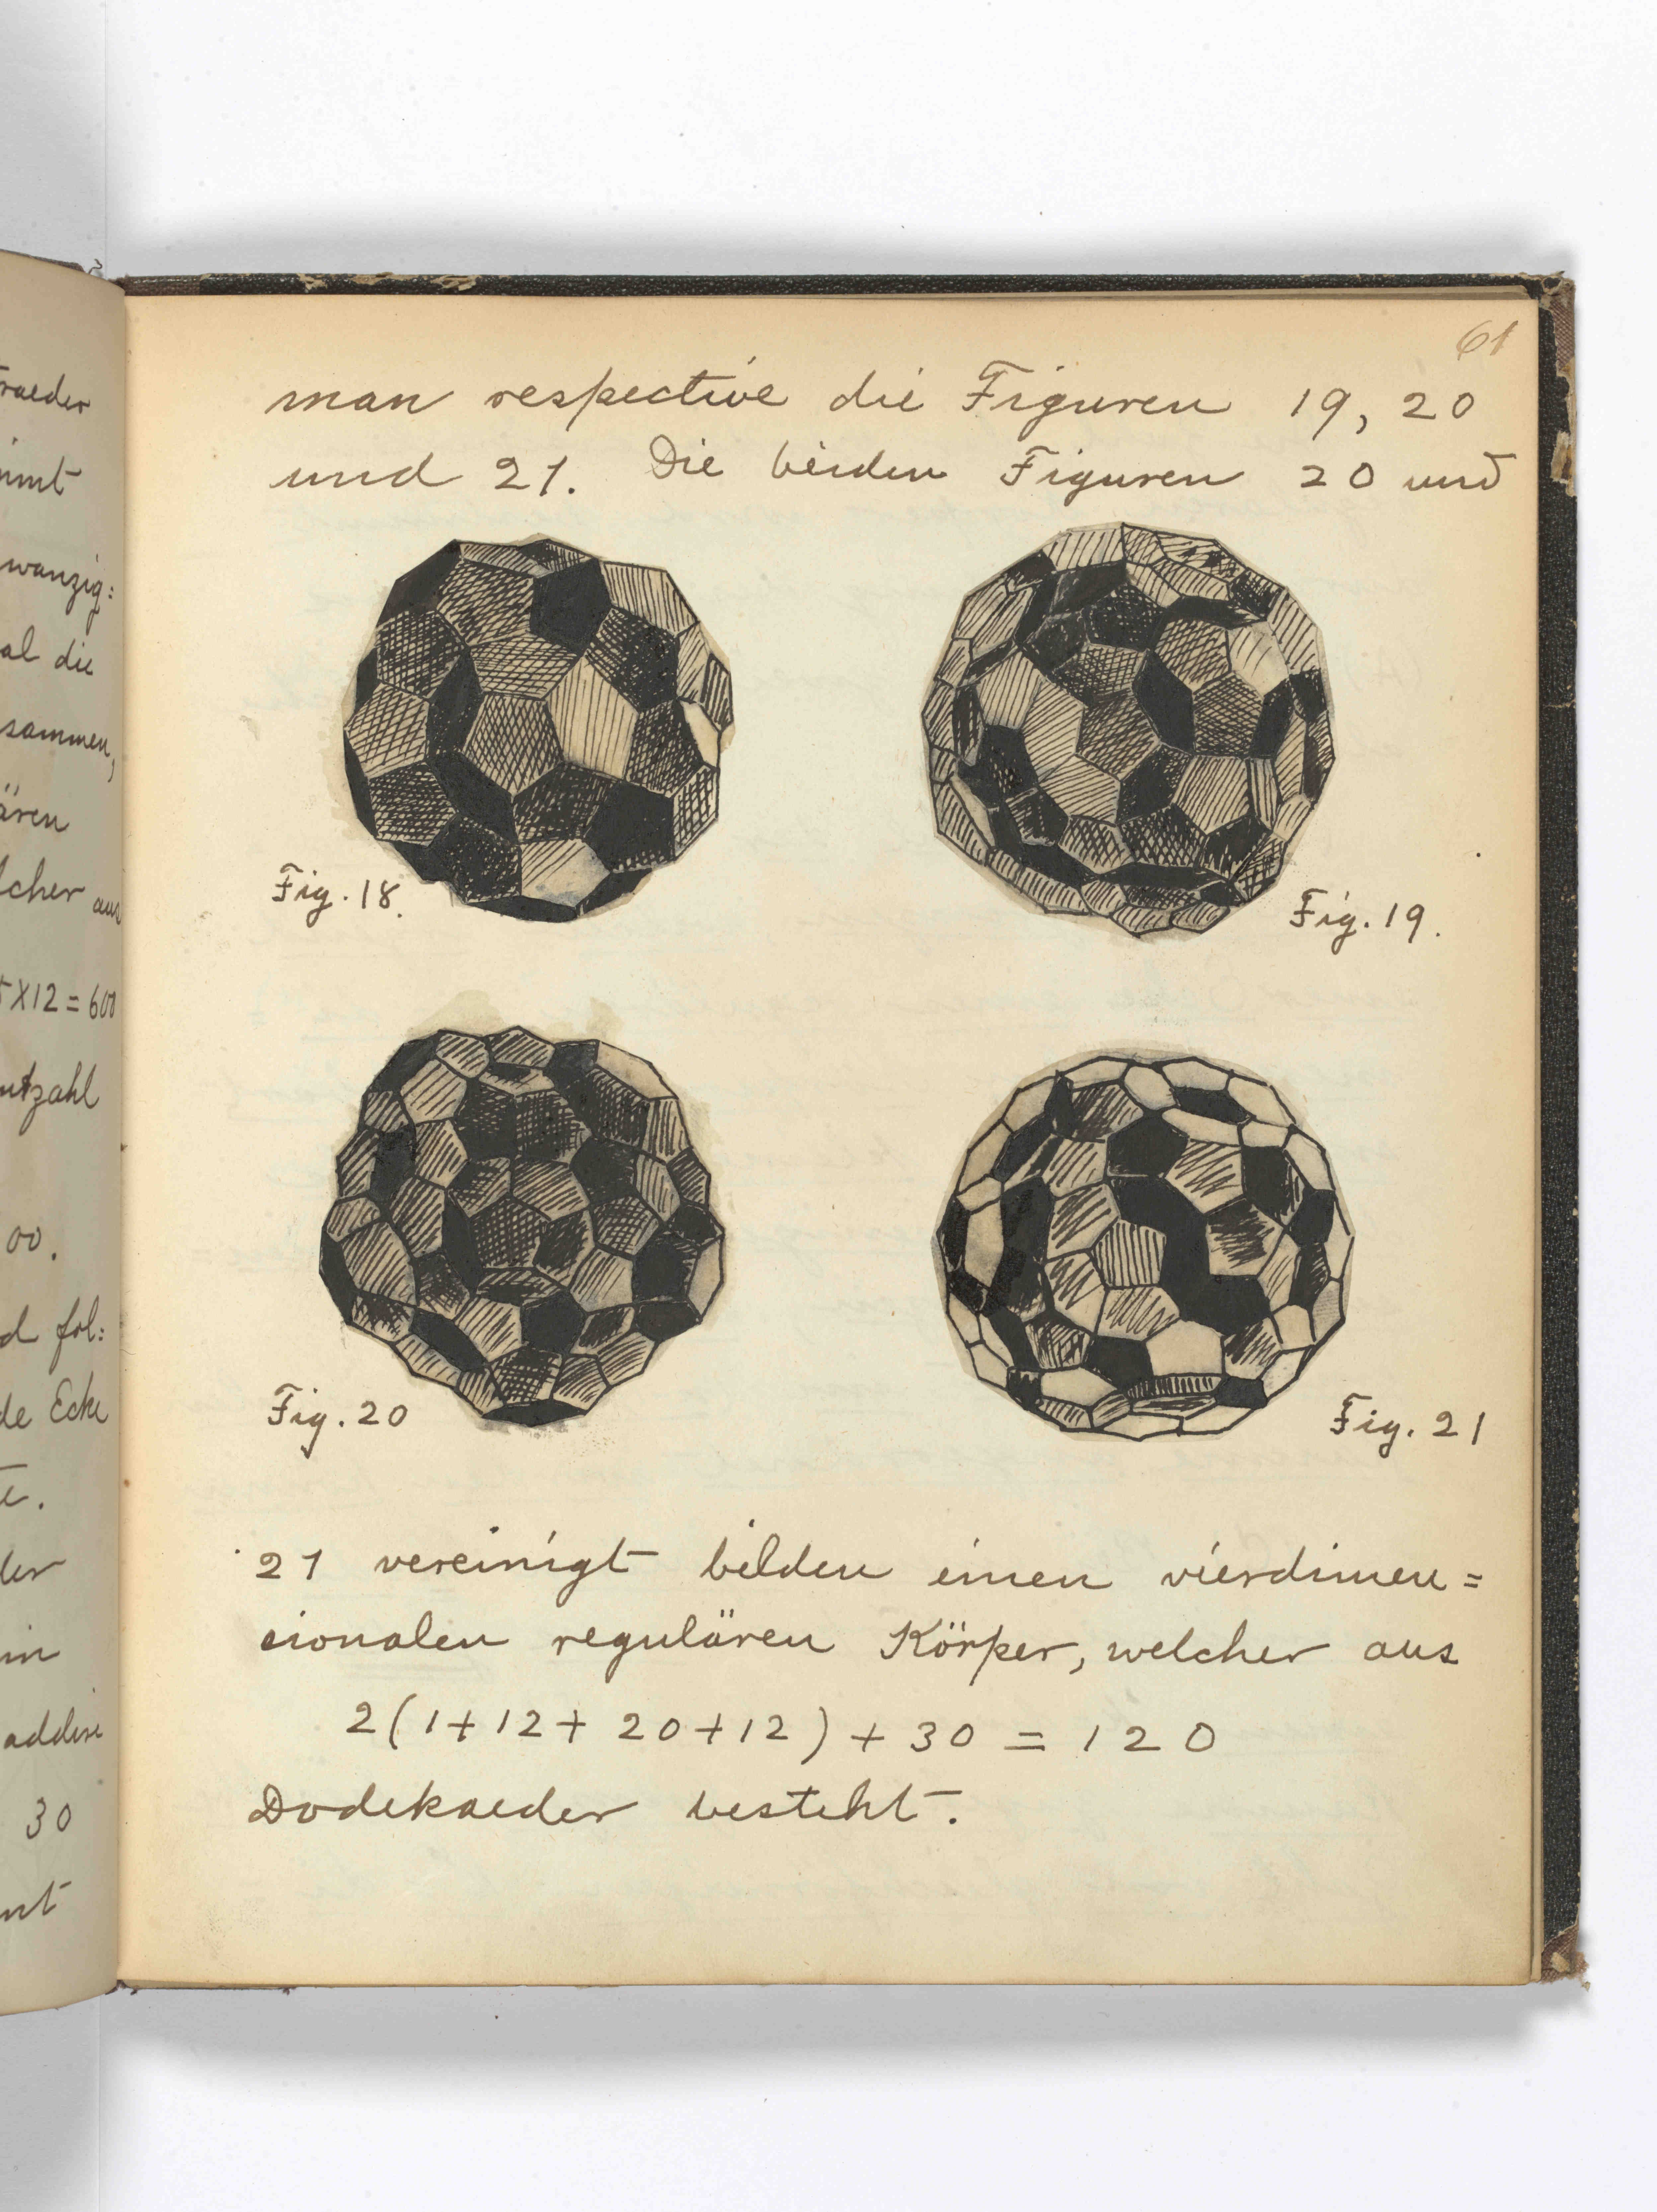 raeder
immt
wanzig:
al die
sammen,
ären
lcher aus
5×12=600
utzahl
00.
d fol:
de Ecke
te.
der
in
addirt
30
nt
61
man respective die Figuren 19, 20
und 21. Die beiden Figuren 20 und
Fig. 18.
Fig. 19.
Fig. 20
Fig. 21
21 vereinigt bilden einen vierdimen=
sionalen regulären Körper, welcher aus
2(1+12+20+12)+30=120
Dodekaeder besteht.